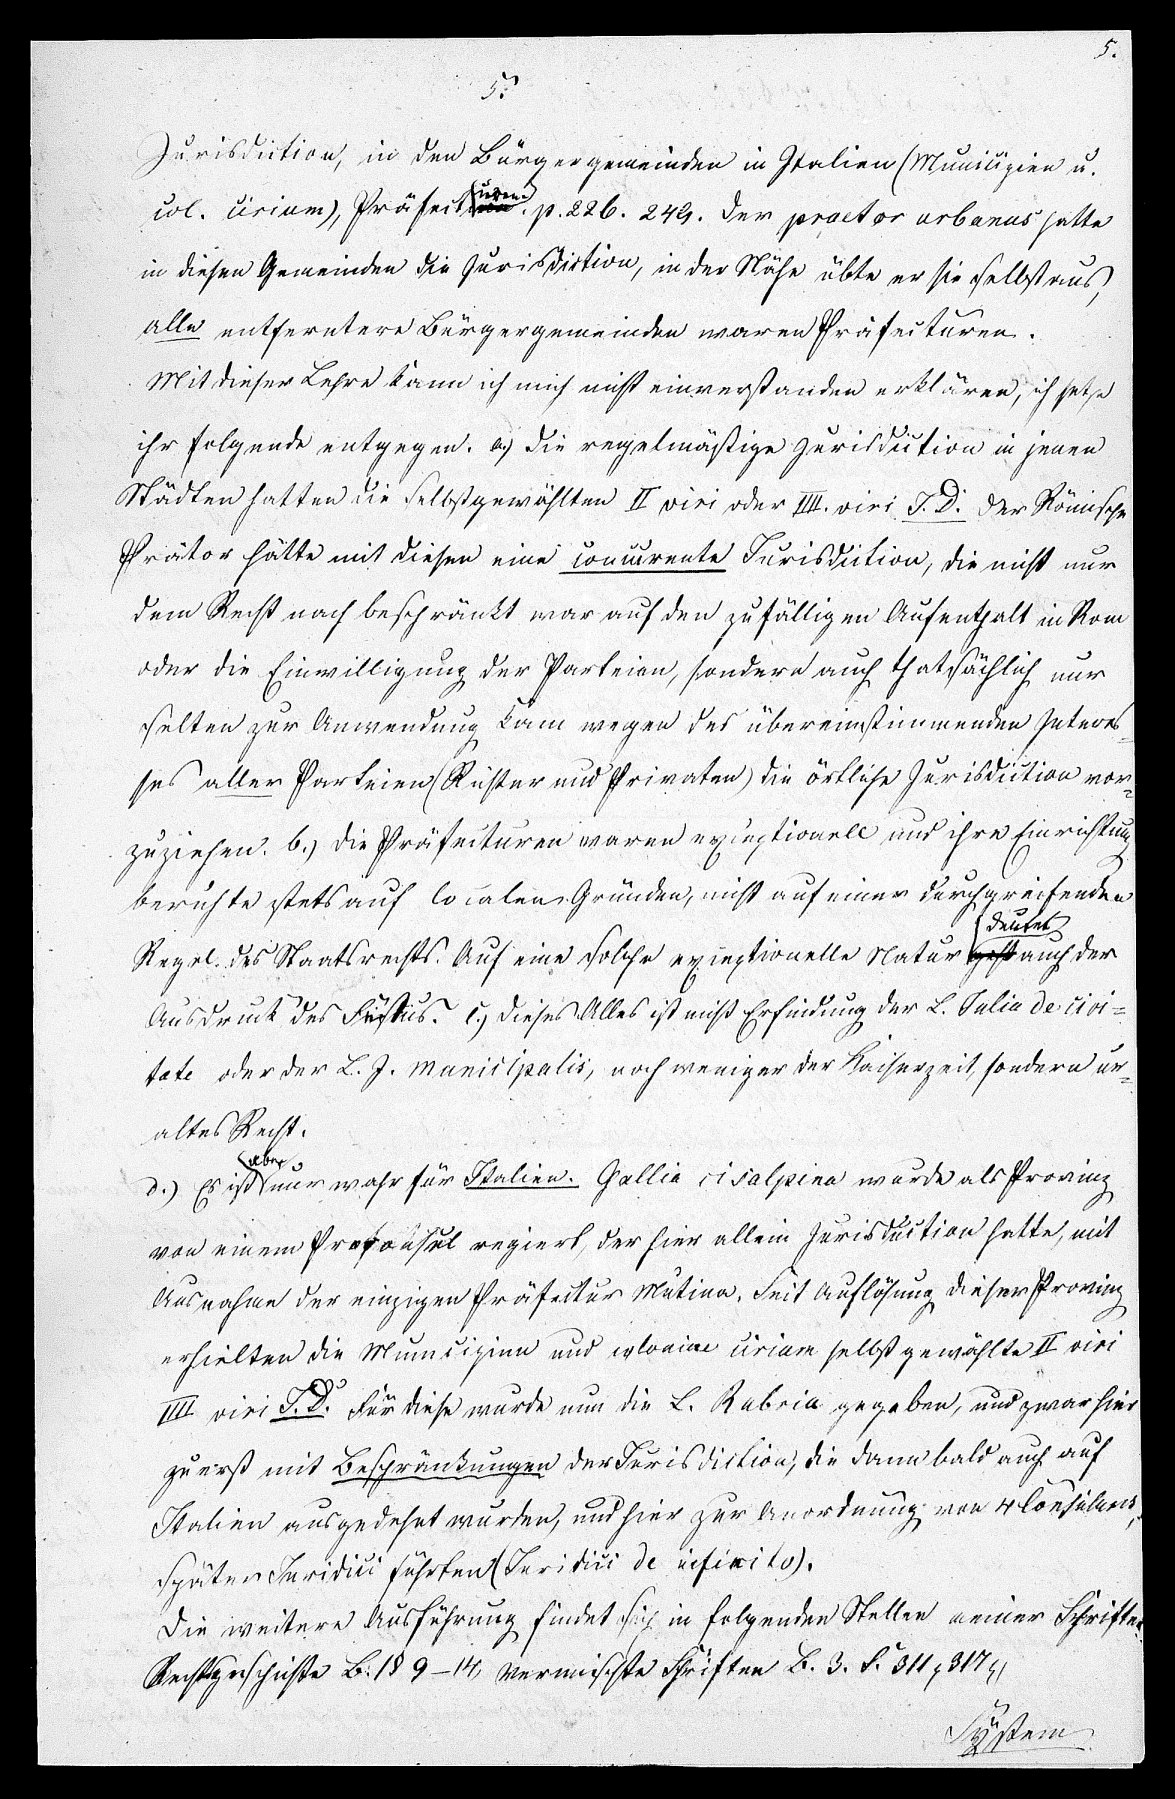 5.
5.
Jurisdiction, in den Bürgergemeinden in Italien (Municipien u.
col. civium), Präfecturen. p. 226. 242. Der praetor urbanus hatte
in diesen Gemeinden die Jurisdiction, in der Nähe übte er sie selbst aus,
alle entferntere Bürgergemeinden waren Präfecturen.
Mit dieser Lehre kann ich mich nicht einverstanden erklären, ich setze
ihr folgende entgegen. a.) die regelmäßige Jurisdiction in jenen
Städten hatten die selbstgewählten II viri oder IIII. viri J. D. Der Römische
Prätor hatte mit diesen eine concurrente Jurisdiction, die nicht nur
dem Recht nach beschränkt war auf den zufälligen Aufenthalt in Rom
oder die Einwilligung der Parteien, sondern auch thatsächlich nur
selten zur Anwendung kam wegen des übereinstimmenden Interes-
ses aller Parteien (Richter und Privaten) die örtliche Jurisdiction vor-
zuziehen. b.) die Präfecturen waren exceptionell und ihre Einrichtung
beruhte stets auf localen Gründen, nicht auf einer durchgreifenden
Regel des Staatsrechts. Auf eine solche exceptionelle Natur deutet auch der
Ausdruck des Festus. c.) dieses Alles ist nicht Erfindung der L. Julia de civi=
tate oder der L. J. municipalis, noch weniger der Kaiserzeit, sondern ur-
altes Recht.
d.) Es ist aber nur wahr für Italien. Gallia cisalpina wurde als Provinz
von einem Proconsul regiert, der hier allein Jurisdiction hatte, mit
Ausnahme der einzigen Präfectur Mutina. Seit Auflösung dieser Provinz
erhielten die Municipien und coloniae civium selbst gewählte II viri
IIII viri J. D. Für diese wurde nun die L. Rubria gegeben, und zwar hier
zuerst mit Beschränkungen der Jurisdiction, die dann bald auch auf
Italien ausgedehnt wurden, und hier zur Anordnung von 4 Consularis,
später Juridici führten (Juridici de infinito).
Die weitere Ausführung findet sich in folgenden Stellen meiner Schriften.
Rechtsgeschichte B. 1 § 9-14, vermischte Schriften B. 3. S. 311, 317,
System